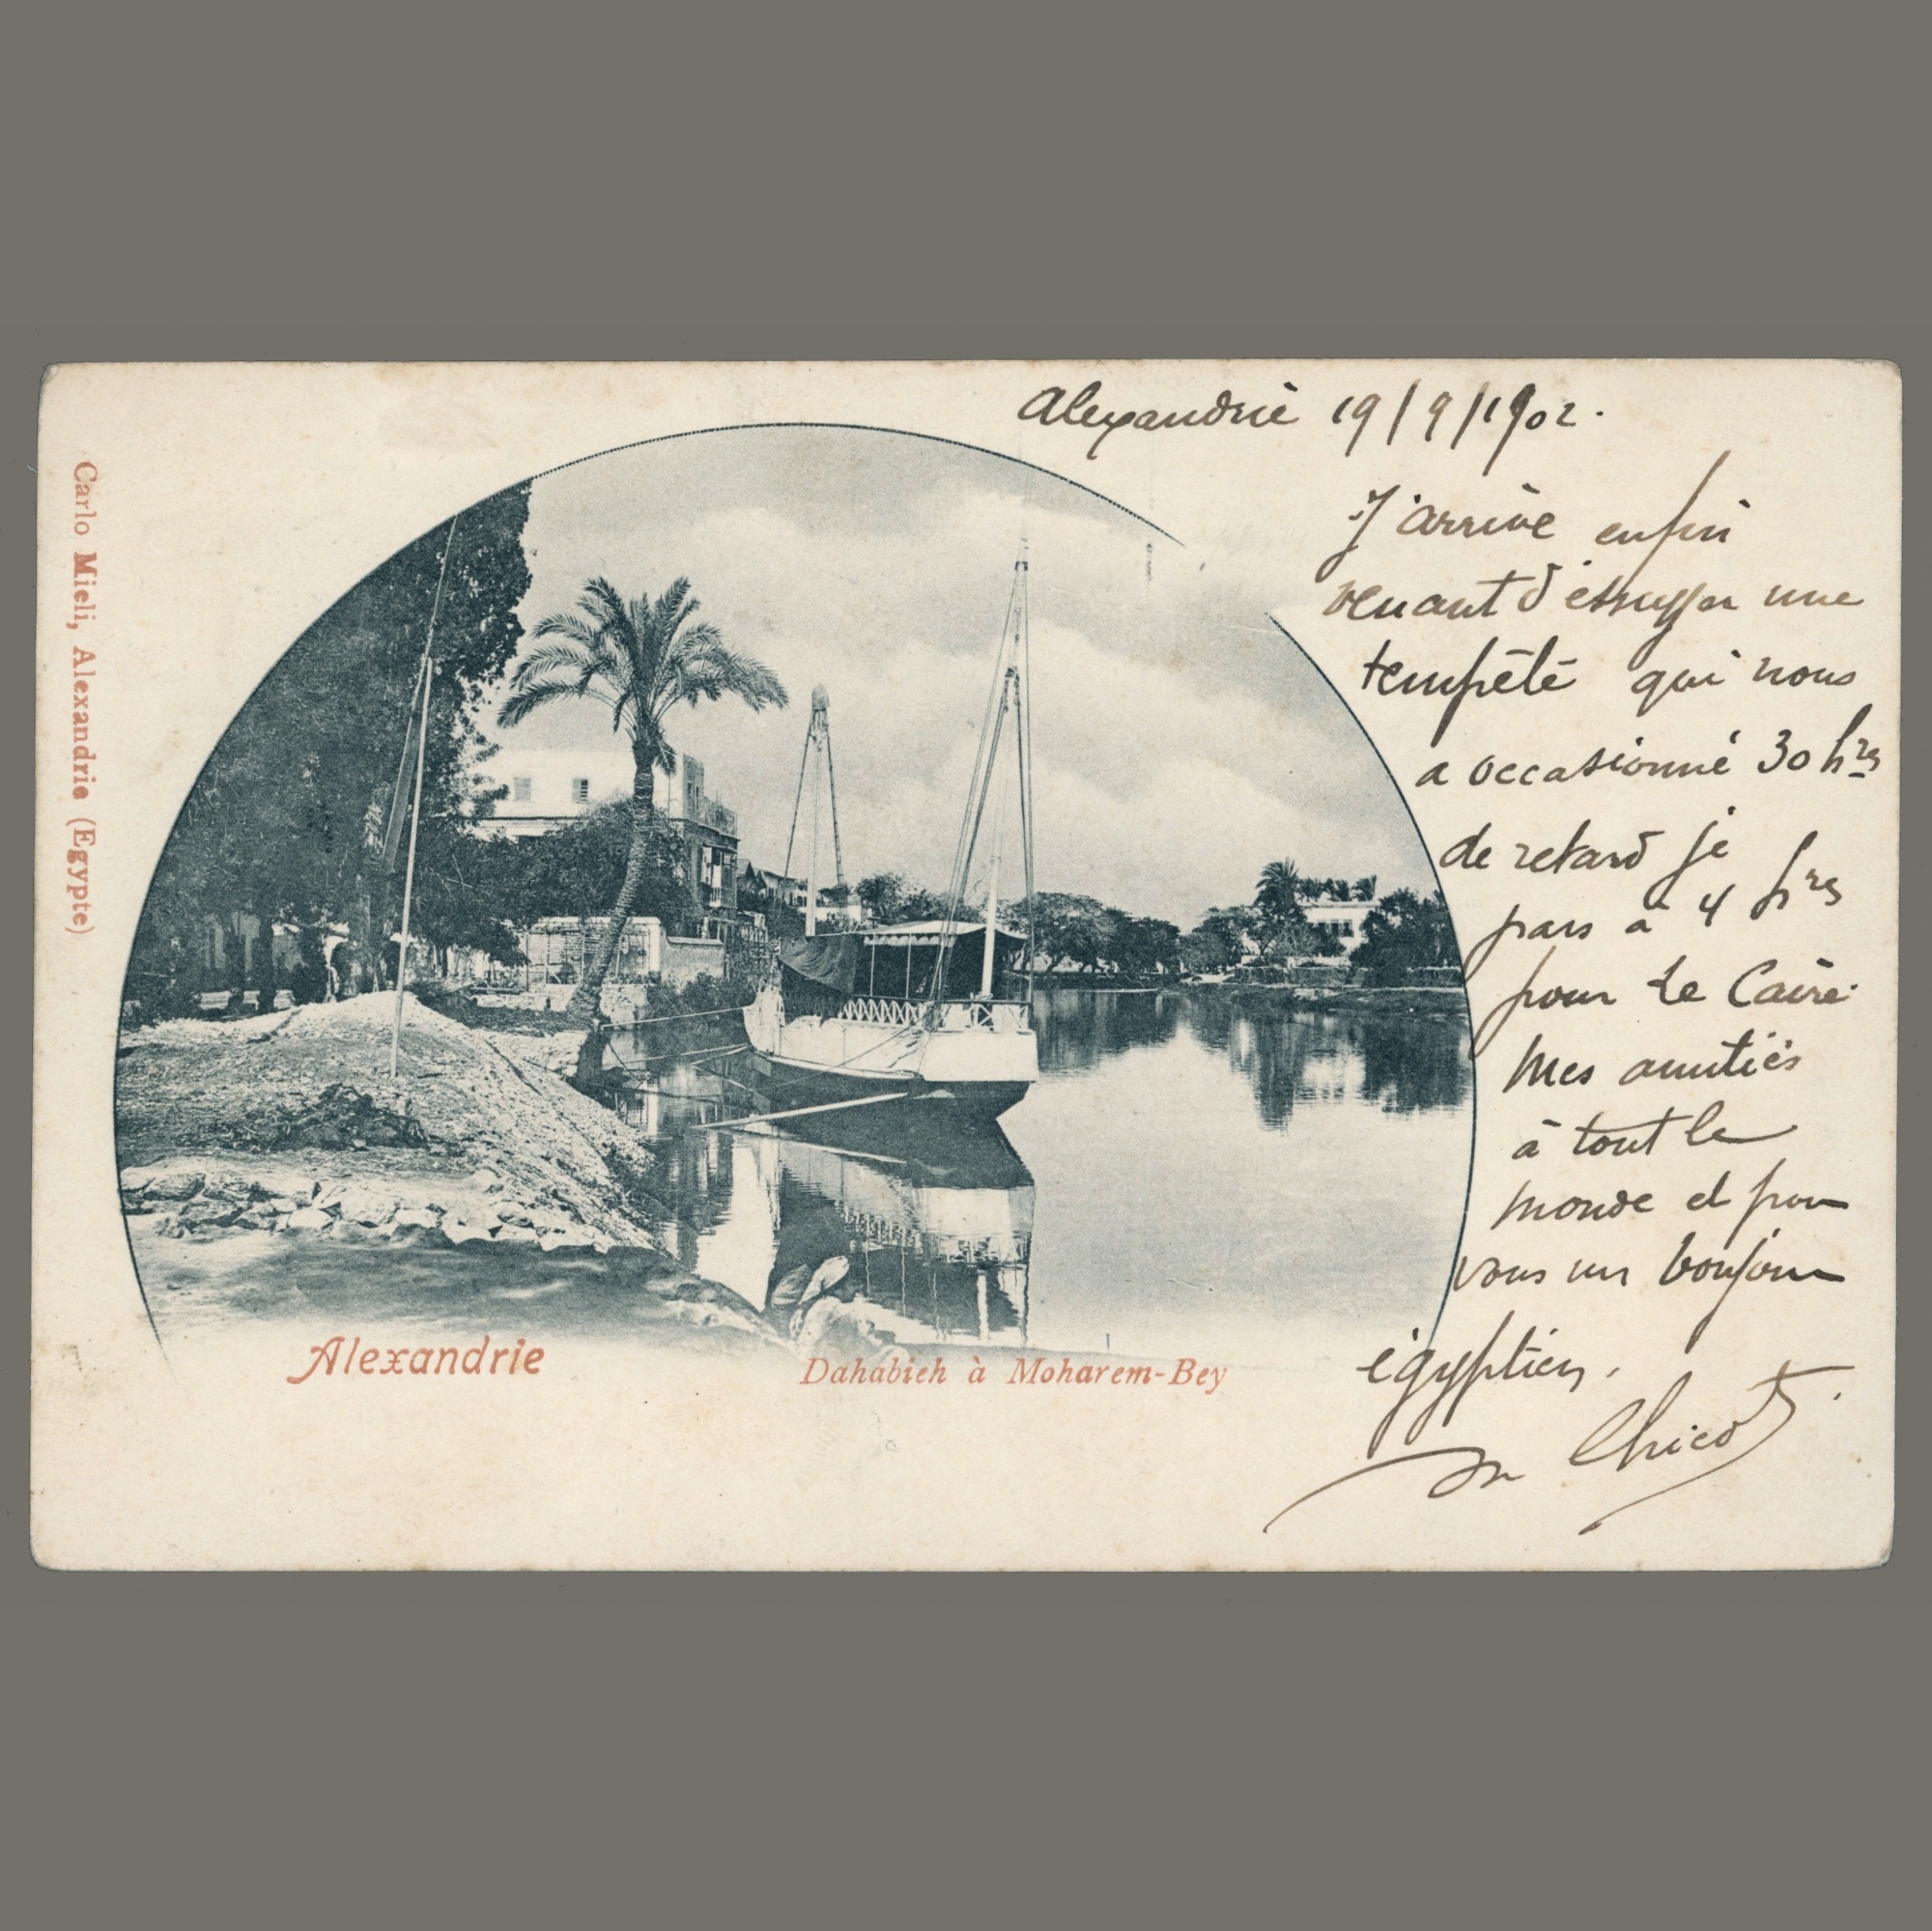 Carlo Mieli, Alexandrie (Egypte)
Alexandrie 19/9/1902.
J'arrive enfin
venant d'essuyer une
tempête qui nous
a occasionné 30 hres
de retard je
pars à 4 hres
pour Le Caire
Mes amitiés
à tout le
monde et pour
vous un bonjour
égyptien.
Alexandrie
Dahabieh à Moharem-Bey
Chicot